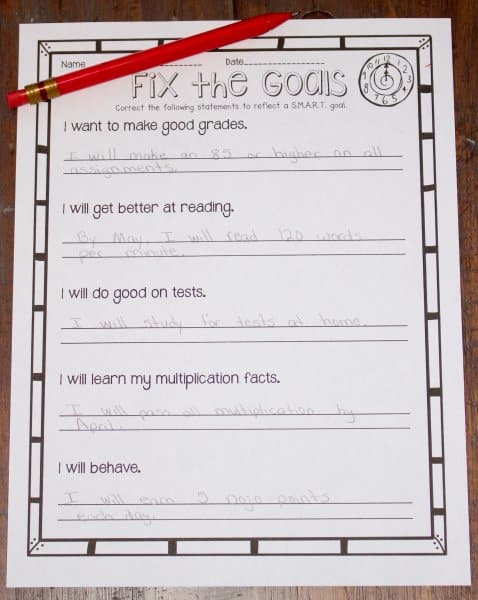 Name Date
Fix the Goals
Correct the following statements to reflect a S.M.A.R.T. goal.
I want to make good grades.
I will make an 85 or higher on all
assignments.
I will get better at reading.
By May, I will read 120 words
per minute.
I will do good on tests.
I will study for tests at home.
I will learn my multiplication facts.
I will pass all multiplication by
April.
I will behave.
I will earn 5 Dojo points
each day.